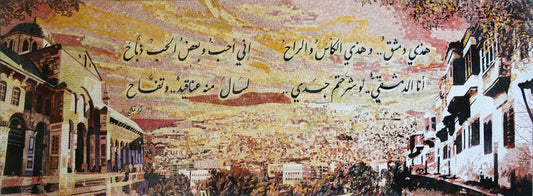 هذي دمشق .. وهذي الكأس والراح إني أحب وبعض الحب ذباح
أنا الدمشقي .. لو شرحتم جسدي .. لسال منه عناقيد .. وتفاح